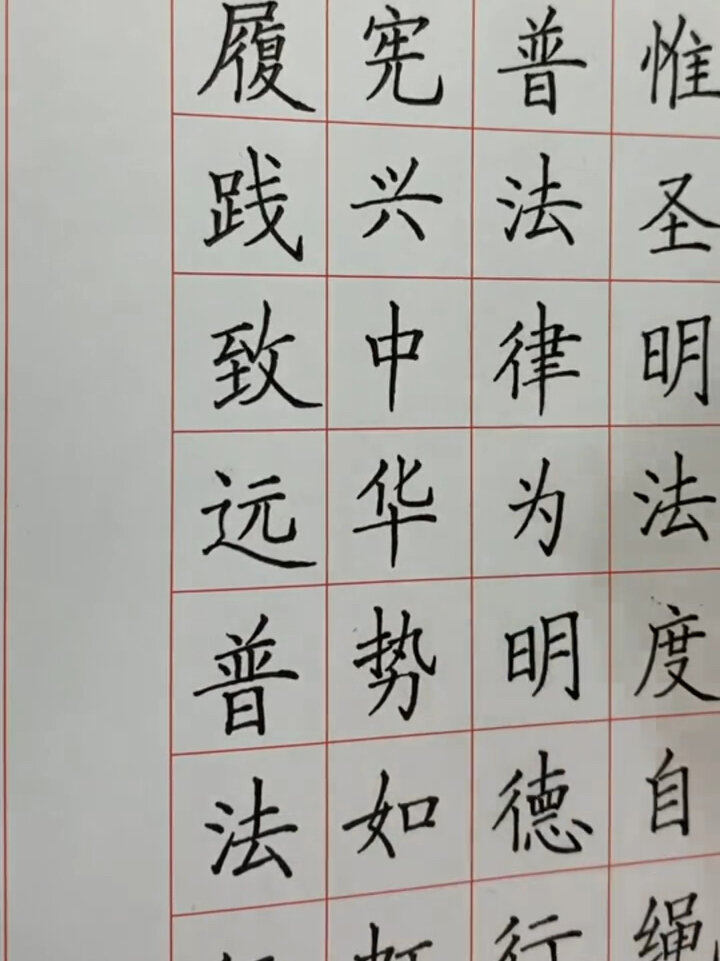 惟圣明法度自绳
普法律为明德行
宪兴中华势如虹
履践致远普法